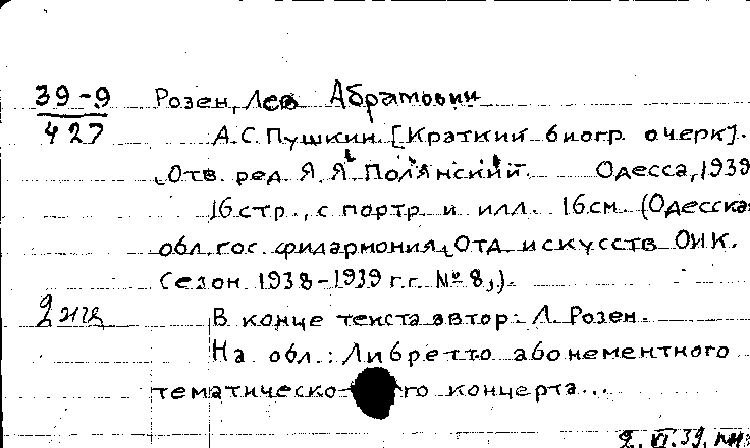 39-9 Розен, Лев Абрамович
427 А.С. Пушкин. [Краткий биогр. очерк].
Отв. ред. Я. Я. Полянский. Одесса, 1939
16 стр., с портр. и илл. 16см. (Одесская
обл. гос. филармония. Отд. искусств ОИК.
Сезон 1938-1939 г.г. № 8,).
В конце текста автор: Л. Розен.
На обл.: Либретто абонементного
тематического концерта...
2.VI.39.